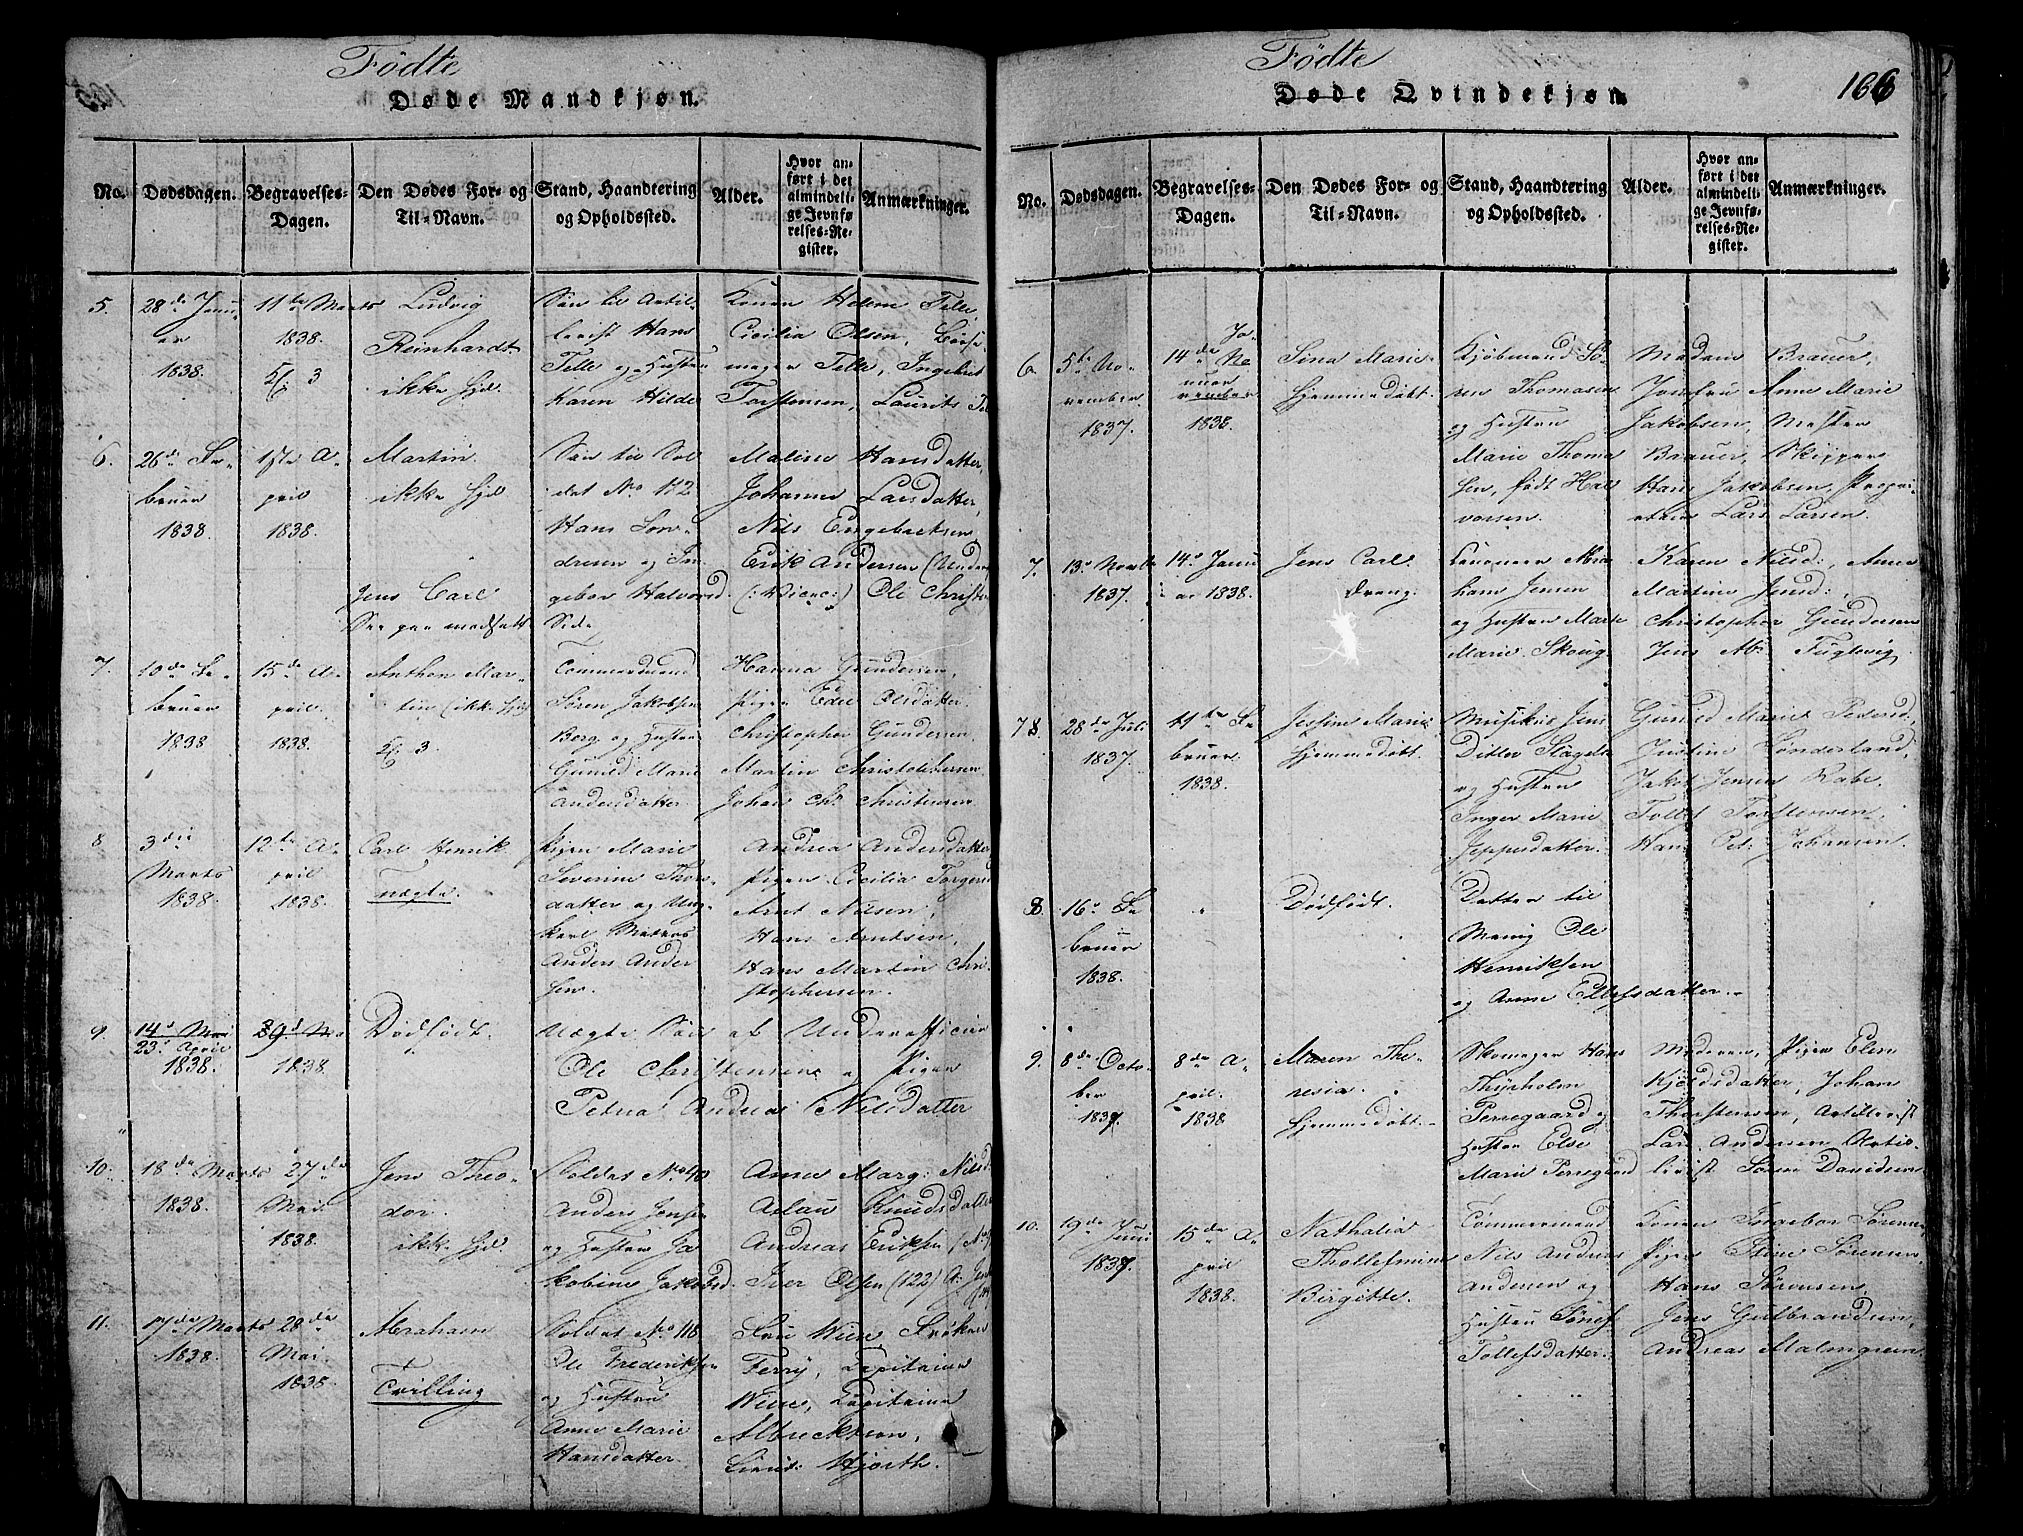 Fødte
Døde Mandkjøn.
No.
Dødsdagen.
Begravelses-
Dagen.
Den Dødes For- og
Til-Navn.
Stand, Haandtering
og Opholdssted.
Alder.
Hvor an-
ført i det
almindeli-
ge Jevnfø-
relses-Re-
gister.
Anmærkninger.
5.
28de Janu-
ar
1838.
11te Marts
1838.
3
Ludvig
Reinhardt
ikke hjd.
Søn til Artil-
lerist Hans
Telle og Hustru
Karen Hilde
Konen Helene Telle,
Cicilia Olsen,
mager Telle, Ingebret
Torstensen, Laurits
6.
26de Fe-
bruar
1838.
1ste A-
pril
1838.
Martin
ikke hjd.
Søn til Sol-
dat No 112
Hans
dresen og In-
gebor Halvorsd.
Maline Hansdatter,
Johanne Larsdatter,
Nils Engebretsen
Erik Andersen
Ole Christen
Jens Carl
See paa modsatte
Side
7.
10de Fe-
bruar
1838
15de A-
pril
1838.
3.
Anthon Mar-
tin (ikke hjd)
Tømmermand
Søren Jakobsen
Berg og Hustru
Gunild Marie
Andersdatter
Hanna Gundersen,
Pigen Edel Olsdatter
Christopher Gundersen
Martin Christophersen
Johan Chr. Christensen
8
3die
Marts
1838.
12te A-
pril
1838.
Carl Henrik
uægte.
Pigen Marie
Severine Thor-
datter og Ung-
karl Matros
Anders Ander
sen.
Andrea Andersdatter
Pigen Cicilia Torgersd
Arnt Nilsen,
Hans Arntsen,
Hans Martin Chri-
stophersen.
9.
14de Mai
23d April
1838.
29d Ma
1838.
Dødfødt.
Uægte Søn af Underofficier
Ole Christensen og Pigen
Petrea Andrea Nilsdatter
10.
18de Marts
1838.
27de
Mai
1838.
Jens Theo-
dor.
ikke hjd.
Soldat No 40
Anders Jensen
og Hustru Ja
kobine Jakobsd.
Anne Marg: Nilsd
Knudsdatter
Andreas Eriksen
Iver Olsen (122)
11.
17de Marts
1838.
28de
Mai.
1838
Abraham
Tvilling
Soldat No 118
Ole Frederiksen
og Hustru
Anne Marie
Hansdatter.
Fru Wiese Frøken
Ferry, Capitaine
Wiese, Capitaine
Albrektson,
Lieut: Hjorth.
Fødte
Døde Qvindekjøn
166
No.
Dødsdagen.
Begravelses-
Dagen.
Den Dødes For- og
Til-Navn.
Stand, Haandtering
og Opholdssted.
Alder.
Hvor an-
ført i det
almindeli-
ge Jevnfø-
relses-Re-
gister.
Anmærkninger.
6.
5te No-
vember
1837.
14de Ja-
nuar
vember
1838.
Sina Marie
hjemmedøbt.
Kjøbmand Sø-
ren Thomasen
og Hustru
Marie Thoma
sen, født Hal
vorsen.
Madam Brauer,
Jomfru Anne Marie
Jakobsen,
Brauer, Skipper
Hans Jakobsen,
Lars Larsen.
7.
13de Novbr
1837.
14de Janu
ar 1838.
Jens Carl
dreng.
Abra
ham Jensen
og Hustru Marte
Marie Skoug
Karen Nilsd:, Anne
Martine
Christopher Gundersen
Jens Ab: Fuglevig
7 8.
28de Juli
1837.
11te Fe
bruar
1838.
Jessine Marie
hjemmedøbt.
Musikus Jens
Ditlev
og Hustru
Inger Marie
Jeppesdatter.
Gunild Marie Pedersd,
Justine Sønderland,
Jakob Jensen Rabe
Tollef Torstensen,
Hans Pet. Johansen.
8.
16de Fe
bruar
1838.
Dødfødt.
Datter til
Menig Ole
Henriksen
og Anne Ellefsdatter.
9.
8de Octo-
ber
1837
8de A-
pril
1838
Maren The-
resia.
hjemmedøbt.
Skomager Hans
Thyrholm
Perregaard og
Hustru Else
Marie Perregaard
Moderen, Pigen Elen
Kjeldsdatter, Johan
Thorstensen, Artillerist
Lars Andersen Artil-
lerist Søren Davidsen
10.
19de Juni
1837.
15de A-
pril
1838.
Nathalia
Tollefmine
Birgitte.
Tømmermand
Nils Anders
Andersen og
Hustru
Tollefsdatter.
Konen Ingebor Sørens,
Pigen Stine Sørensen,
Hans Sørensen,
Jens Gulbrandsen,
Andreas Malmgreen